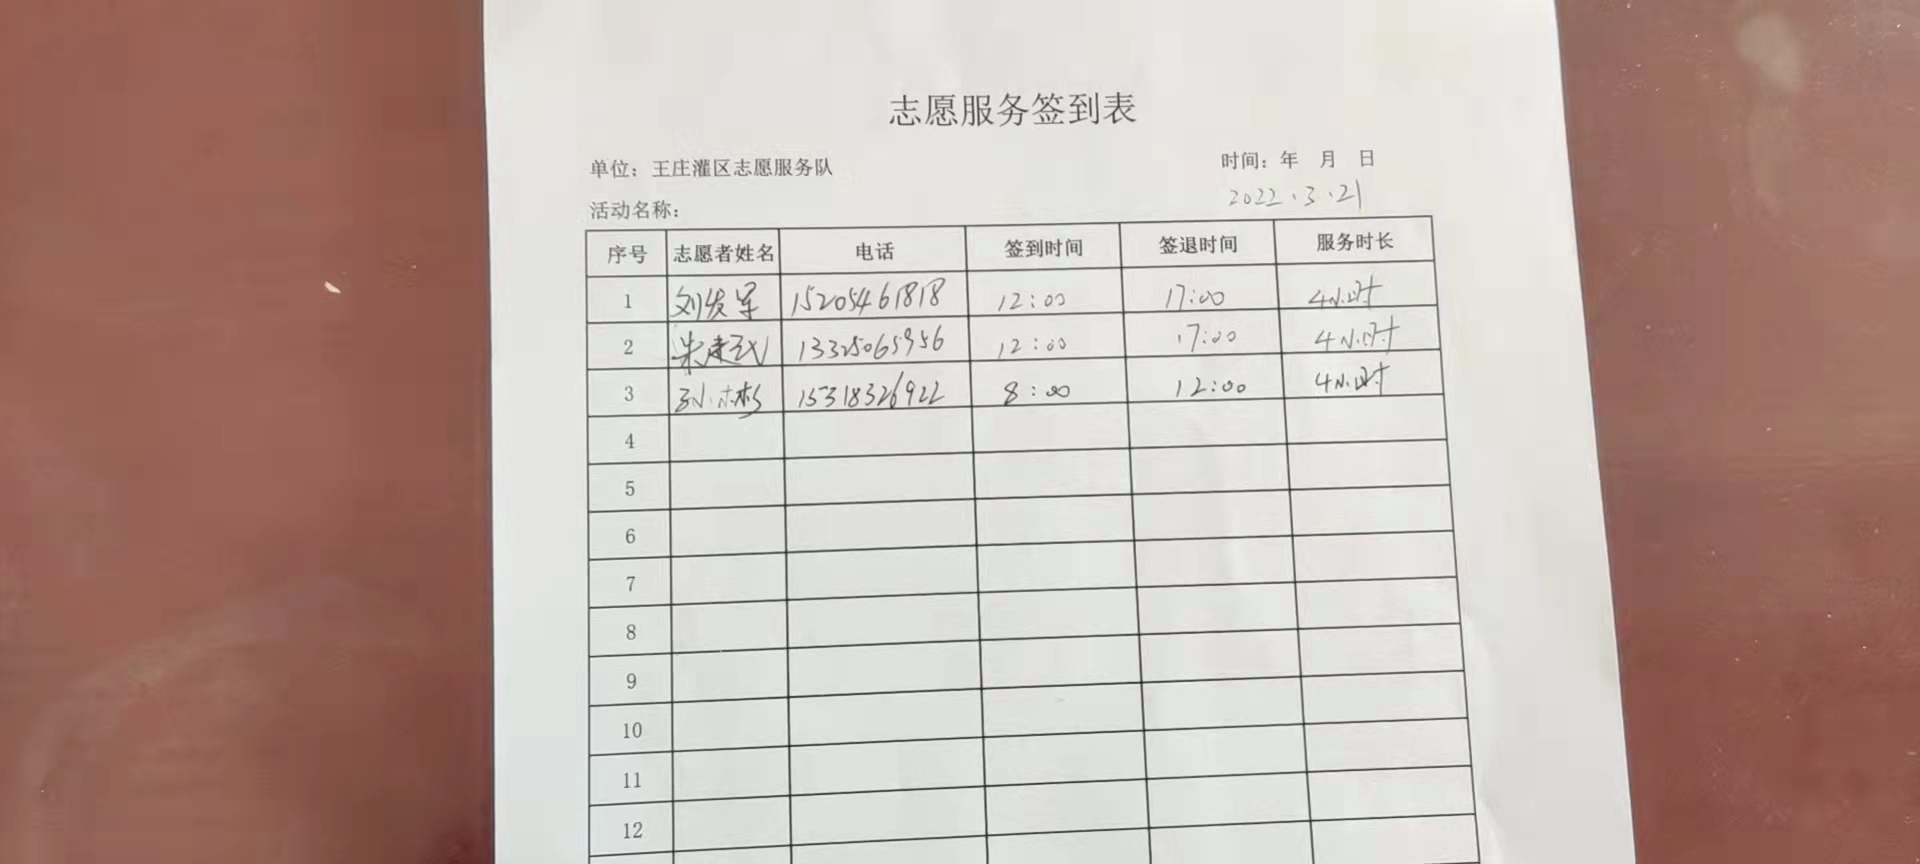 志愿服务签到表
单位：王庄灌区志愿服务队 时间：年 月 日
2022.3.21
活动名称：
序号 志愿者姓名 电话 签到时间 签退时间 服务时长
1 刘发军 15205461818 12:00 17:00 4小时
2 朱建武 13325065956 12:00 17:00 4小时
3 孙彬 15318326922 8:00 12:00 4小时
4
5
6
7
8
9
10
11
12